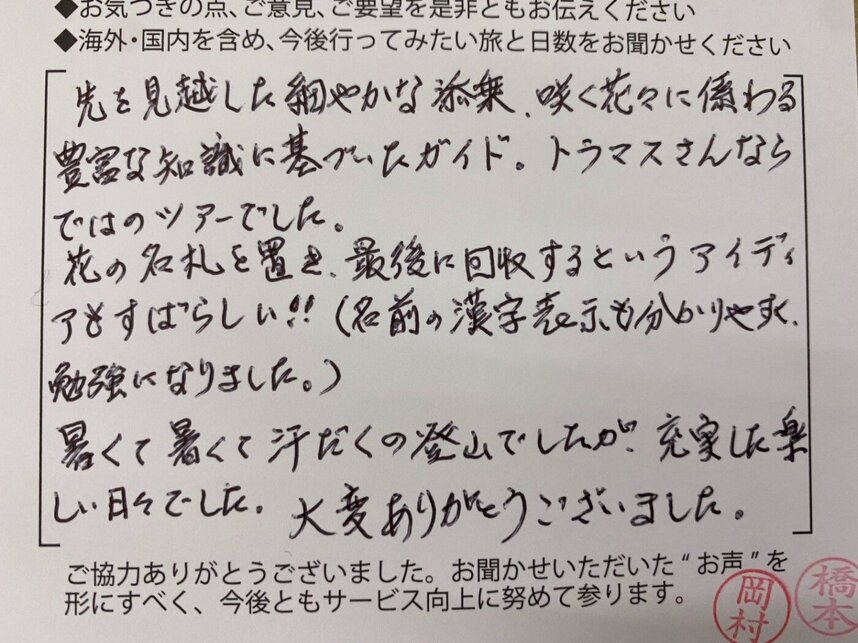 ◆お気づきの点、ご意見、ご要望を是非ともお伝えください
◆海外・国内を含め、今後行ってみたい旅と日数をお聞かせください
先を見越した細やかな添乗、咲く花々に係わる
豊富な知識に基づいたガイド。トラマスさんなら
ではのツアーでした。
花の名札を置き、最後に回収するというアイディ
アもすばらしい!!(名前の漢字表示も分かりやすく、
勉強になりました。)
暑くて暑くて汗だくの登山でしたが、充実した楽
しい日々でした。大変ありがとうございました。
ご協力ありがとうございました。お聞かせいただいた“お声”を
形にすべく、今後ともサービス向上に努めて参ります。
岡村
橋本